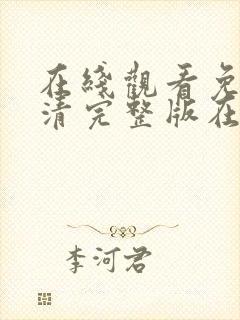 在綫觀看免
清完整版在
李河君